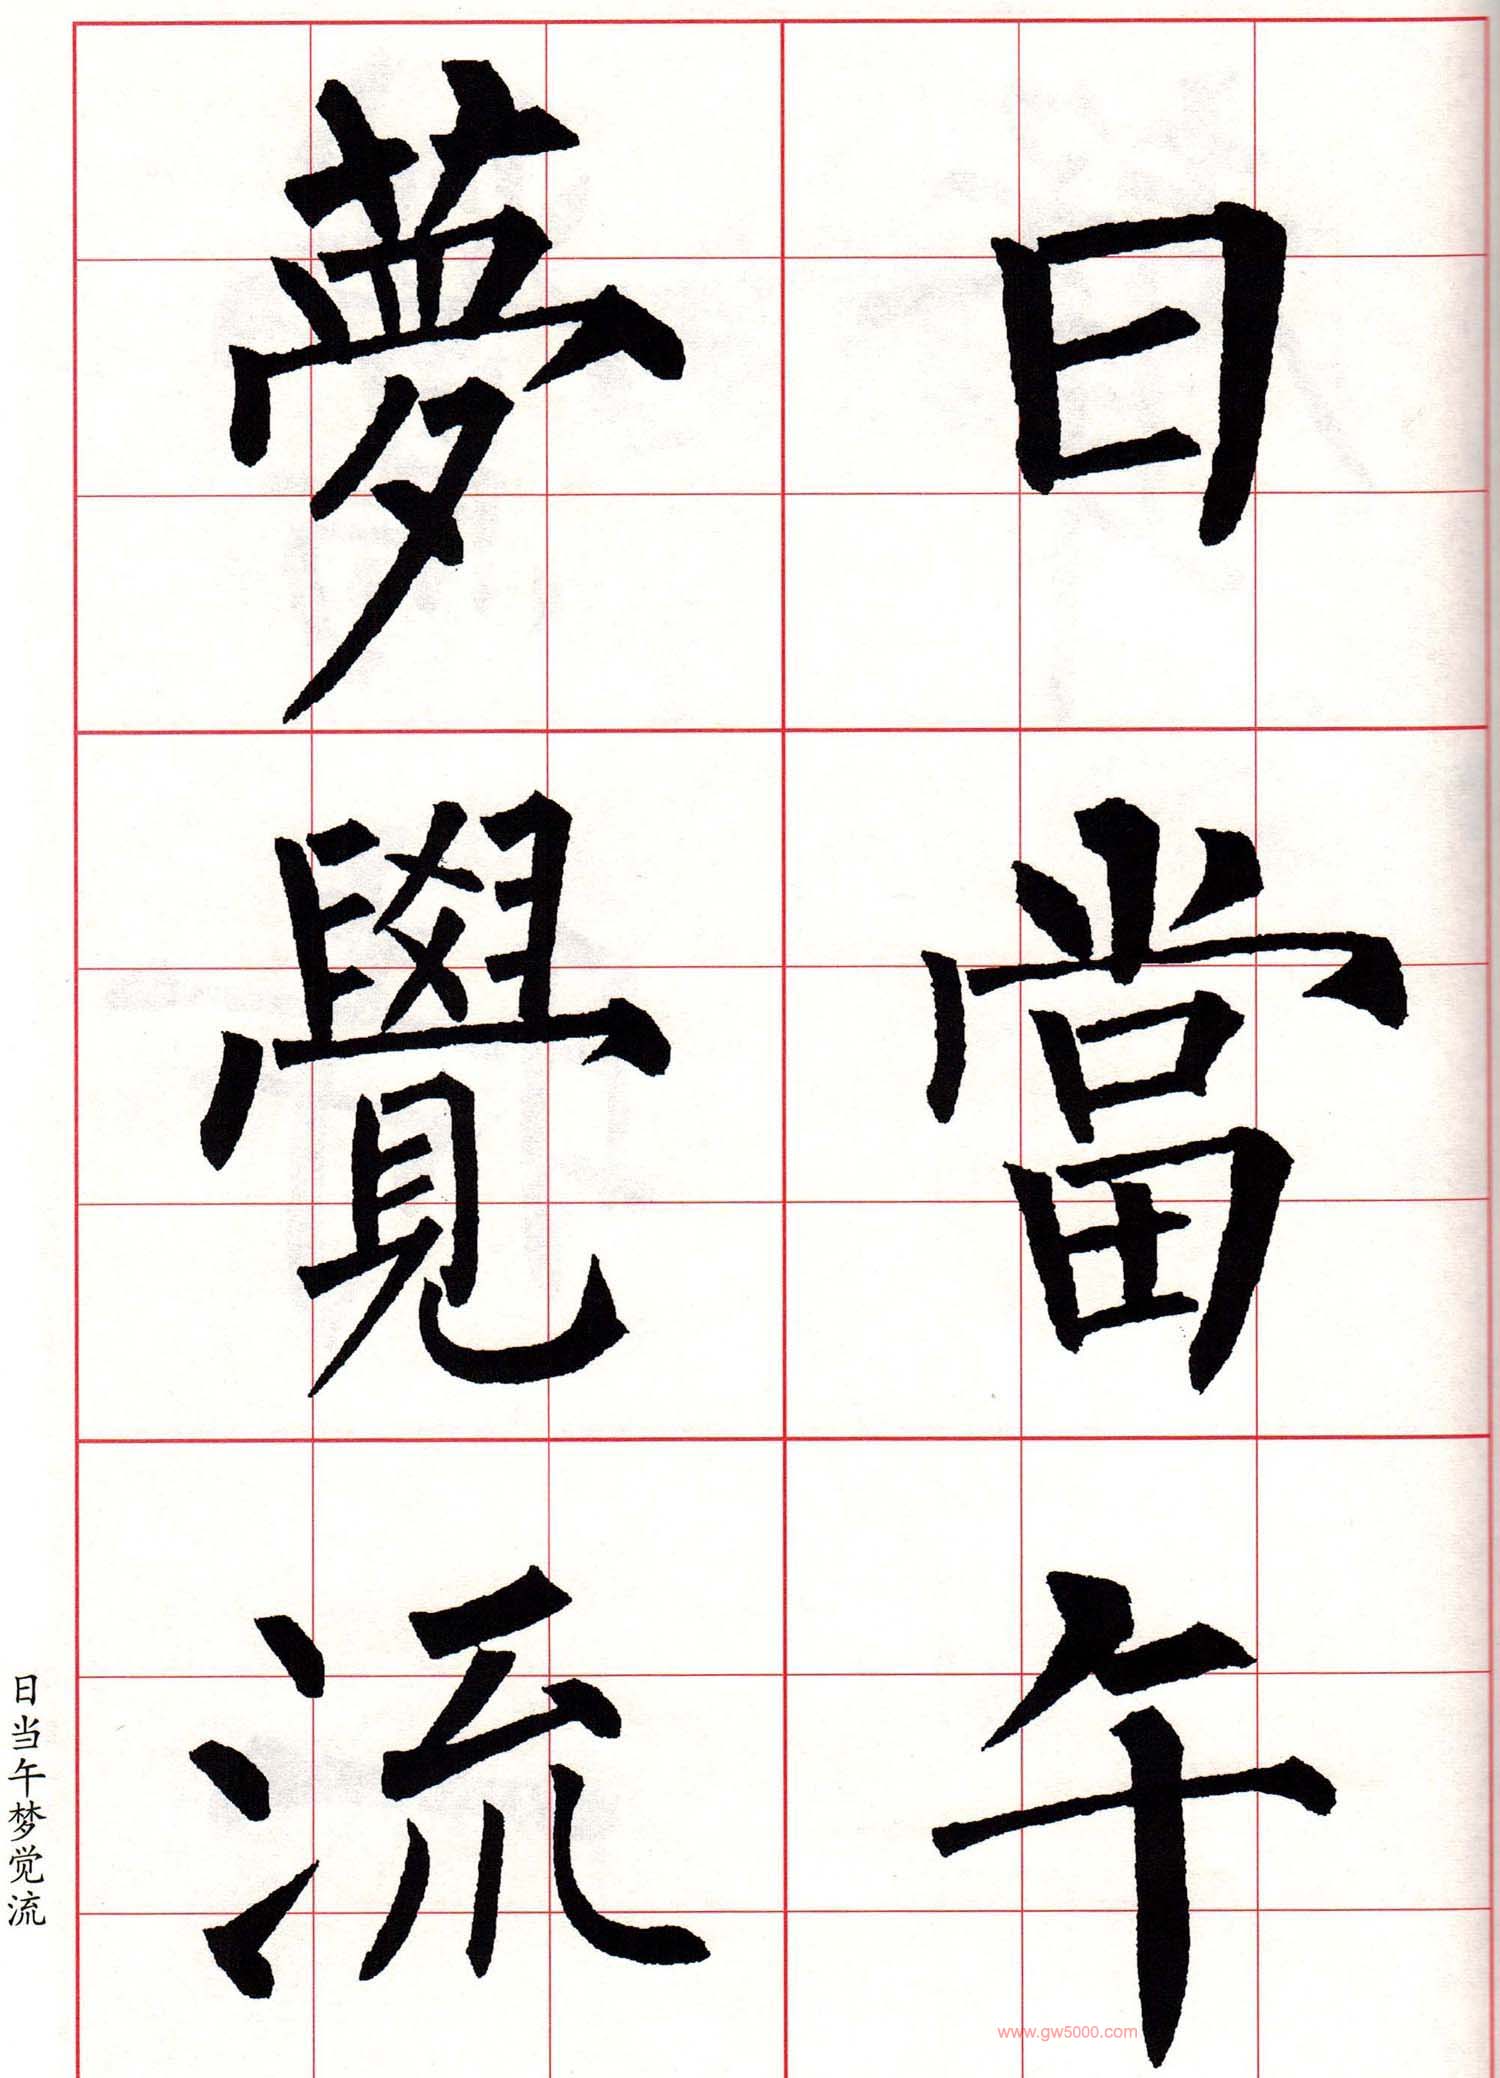 日當午
夢覺流
日当午梦觉流
www.gw5000.com